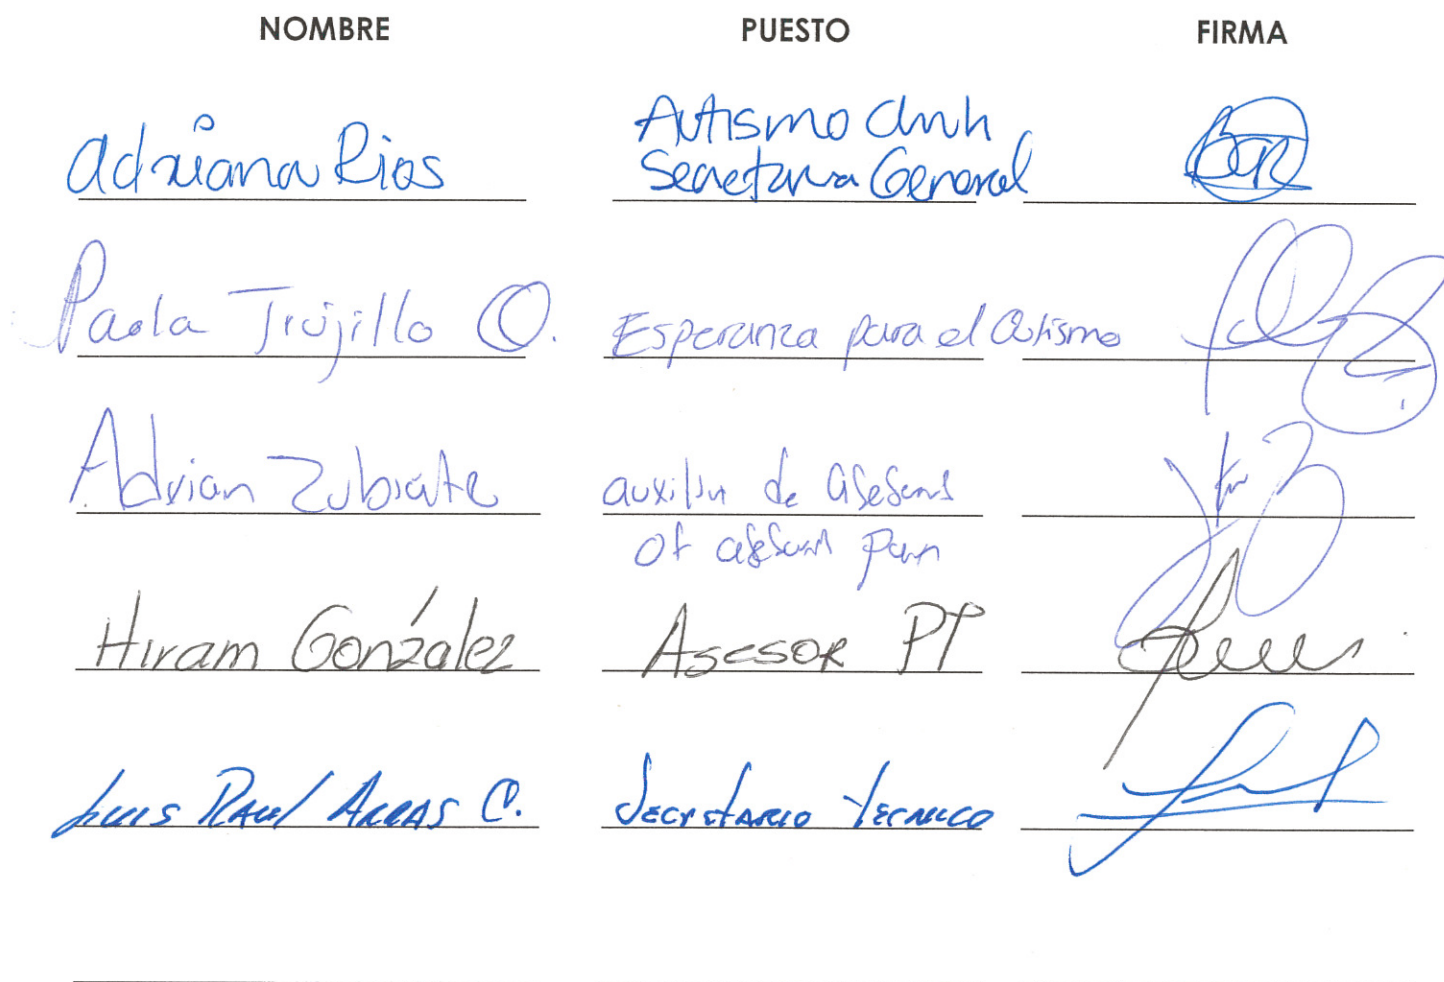 NOMBRE PUESTO FIRMA
Autismo Chih
Adriana Rios Secretaria General
Paola Trujillo O. Esperanza para el Autismo
Adrian Zubiate auxiliar de asesores
of
Hiram González Asesor PT
Luis Raul Arras C. Secretario Tecnico